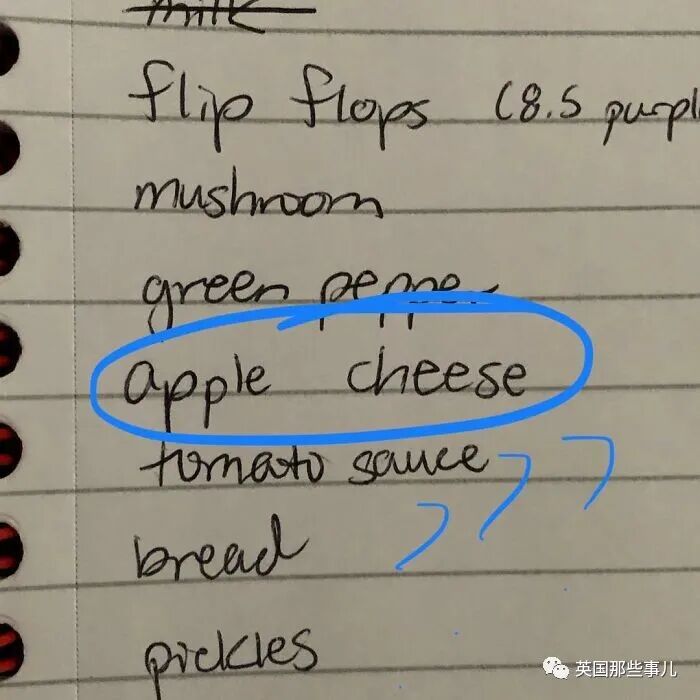 milk
flip flops (8.5 purpl
mushroom
green pepper
apple cheese
tomato sauce
bread
pickles
英国那些事儿